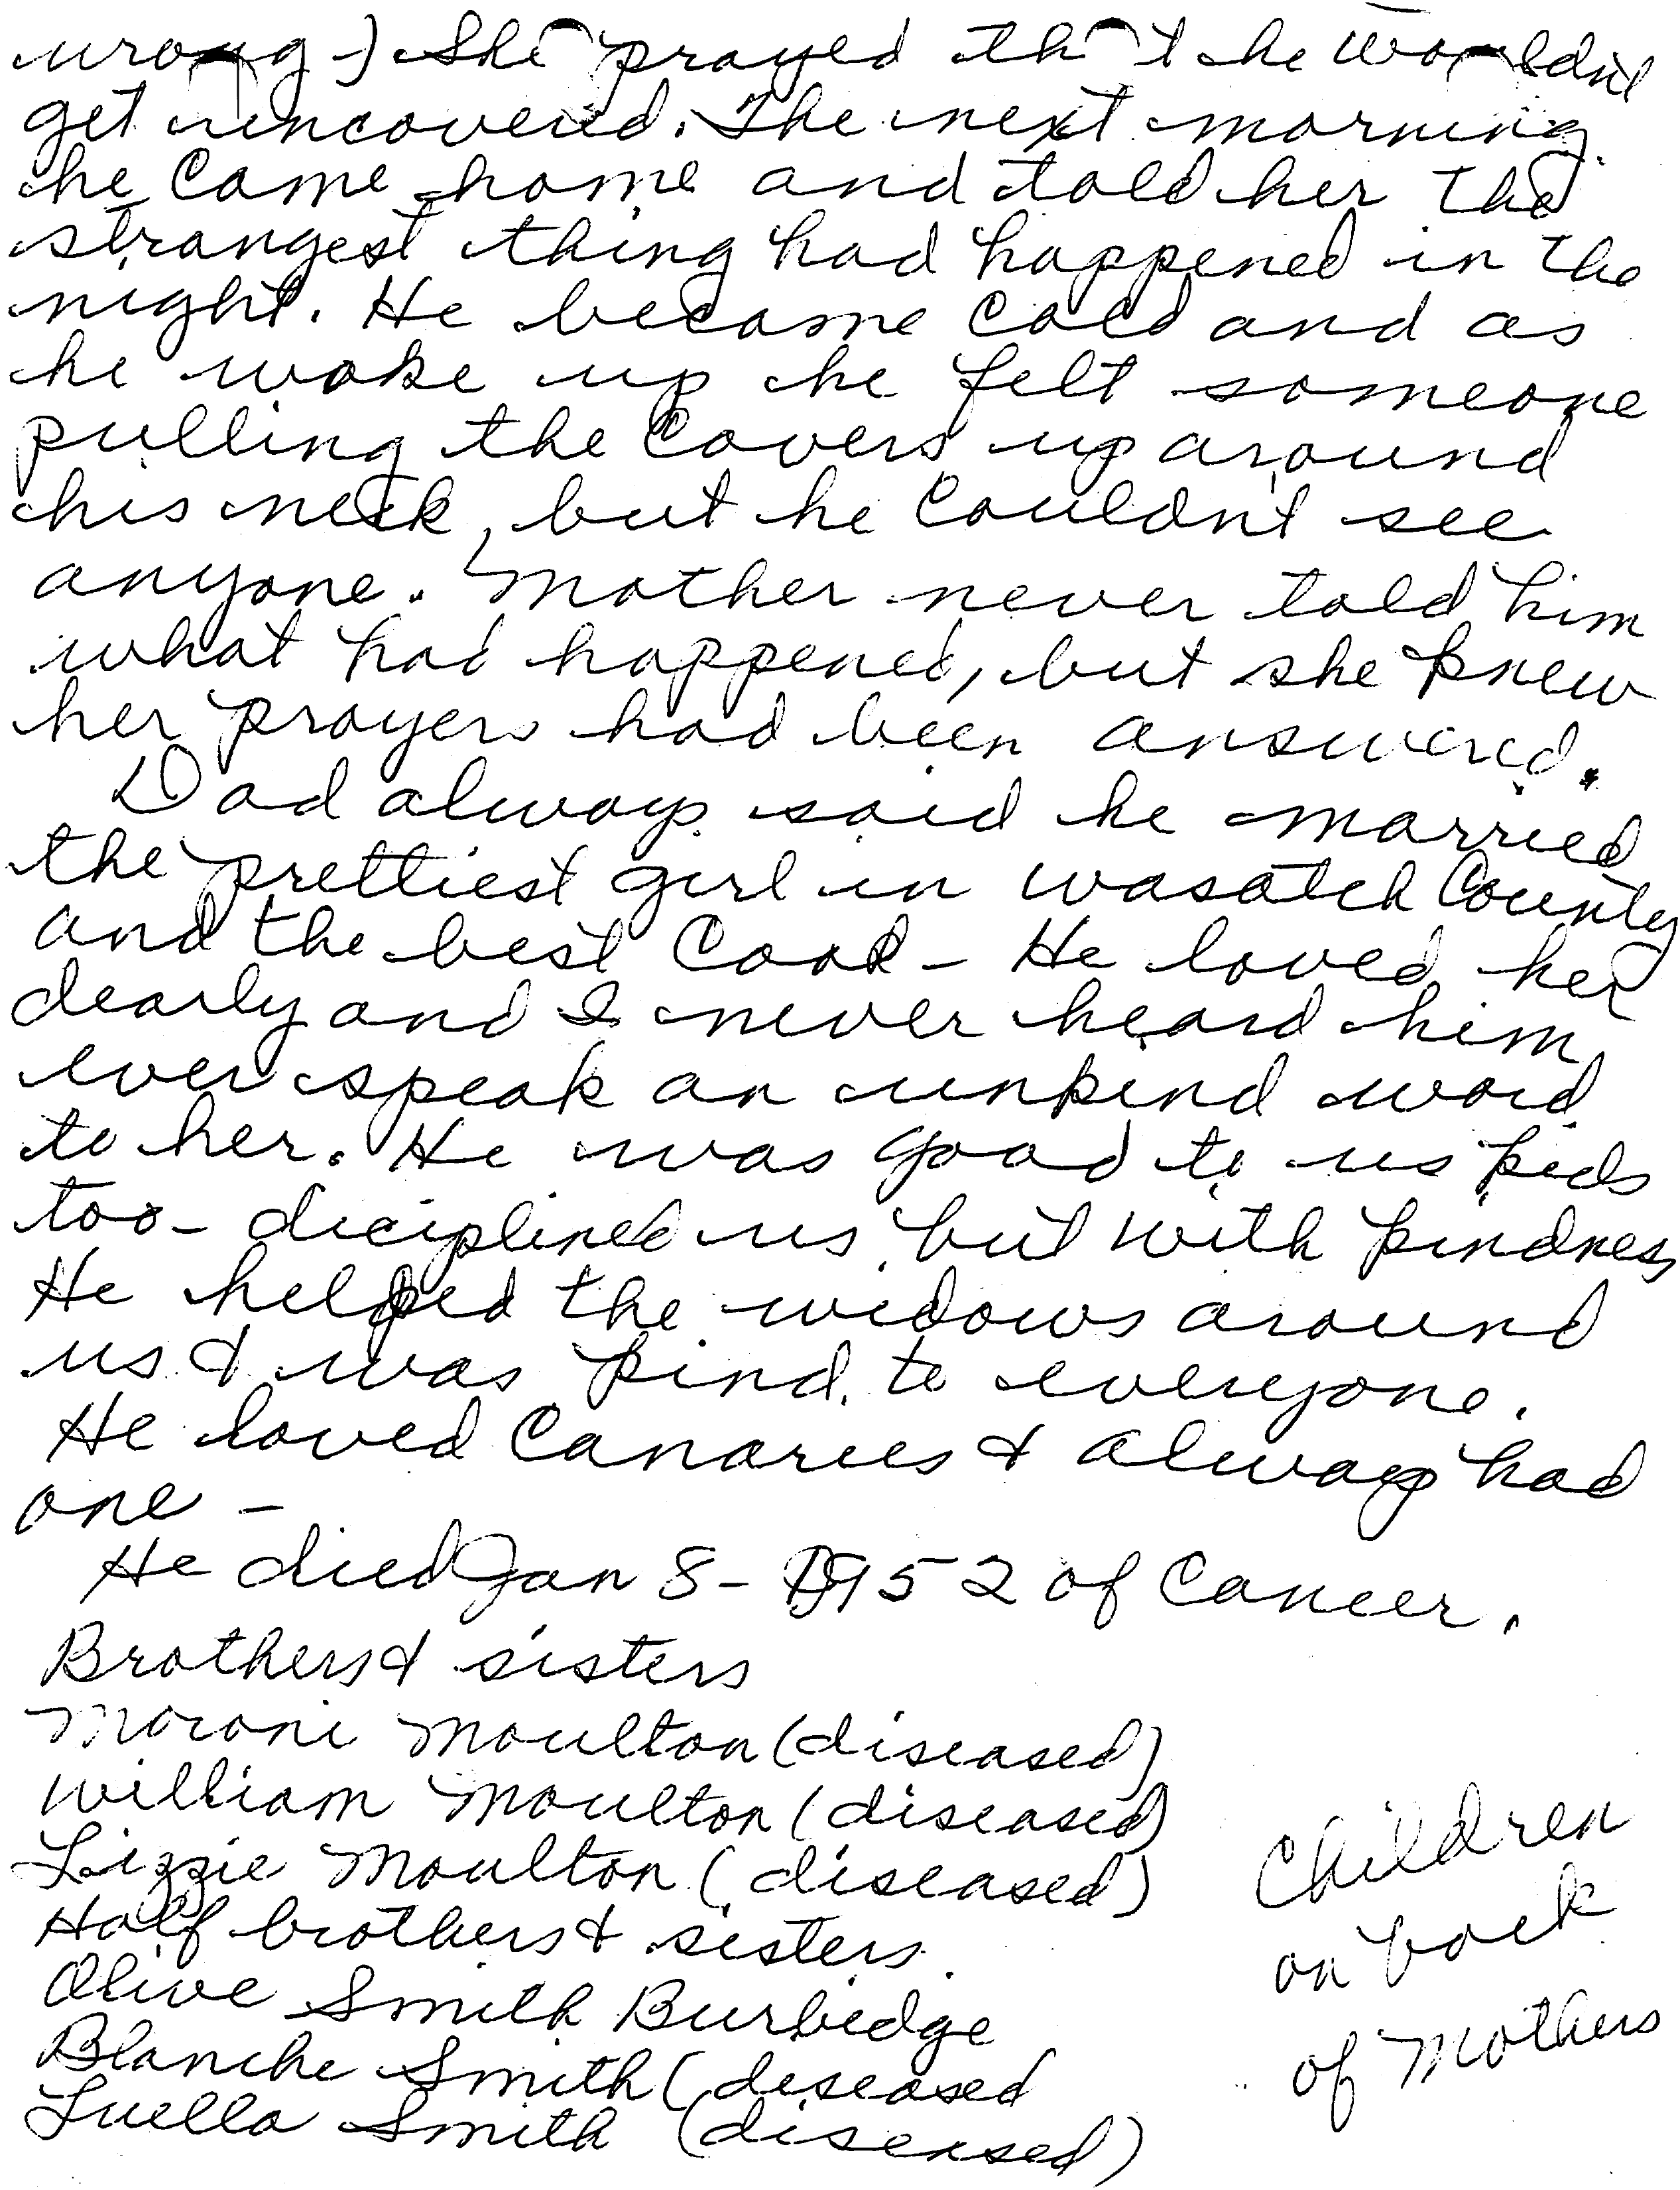 wrong) She prayed that he wouldn't
get uncovered. The next morning
he came home and told her the
strangest thing had happened in the
night. He became cold and as
he woke up he felt someone
pulling the covers up around
his neck, but he couldn't see
anyone. Mother never told him
what had happened, but she knew
her prayers had been answered.
Dad always said he married
the prettiest girl in Wasatch County
and the best cook - He loved her
dearly and I never heard him
ever speak an unkind word
to her. He was good to us kids
too - diciplined us but with kindness
He helped the widows around
us & was kind to everyone.
He loved Canaries & always had
one -
He died Jan 8 - 1952 of Cancer.
Brothers & sisters
Moroni Moulton (diseased)
William Moulton (diseased)
Lizzie Moulton (diseased)
Half brothers & sisters.
Olive Smith Burbidge
Blanche Smith (diseased
Luella Smith (diseased)
Children
on back
of Mothers